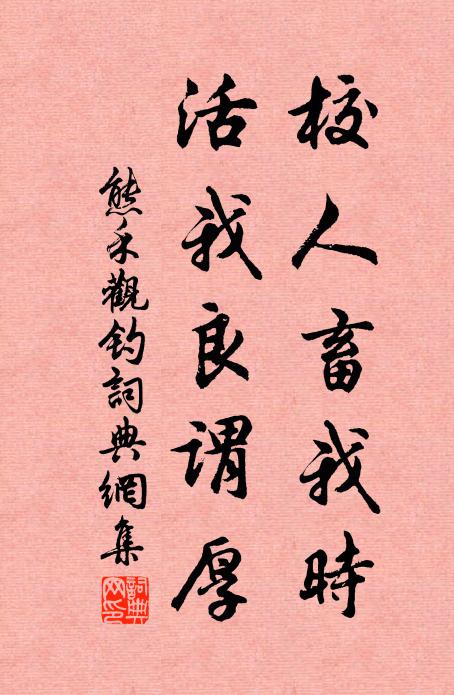 校人畜我時
活我良謂厚
熊禾觀釣詞典網集
詞典網印